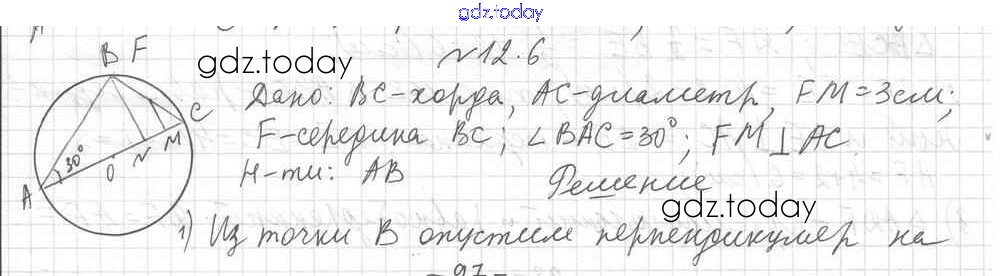 gdz.today
№12.6
gdz.today
B F
Дано: BC-хорда, AC-диаметр, FM=3см;
C
F-середина BC; ∠BAC=30°; FM⊥AC
30°
O N M
A
Н-ти: AB
Решение
gdz.today
1) Из точки B опустим перпендикуляр на
-97-